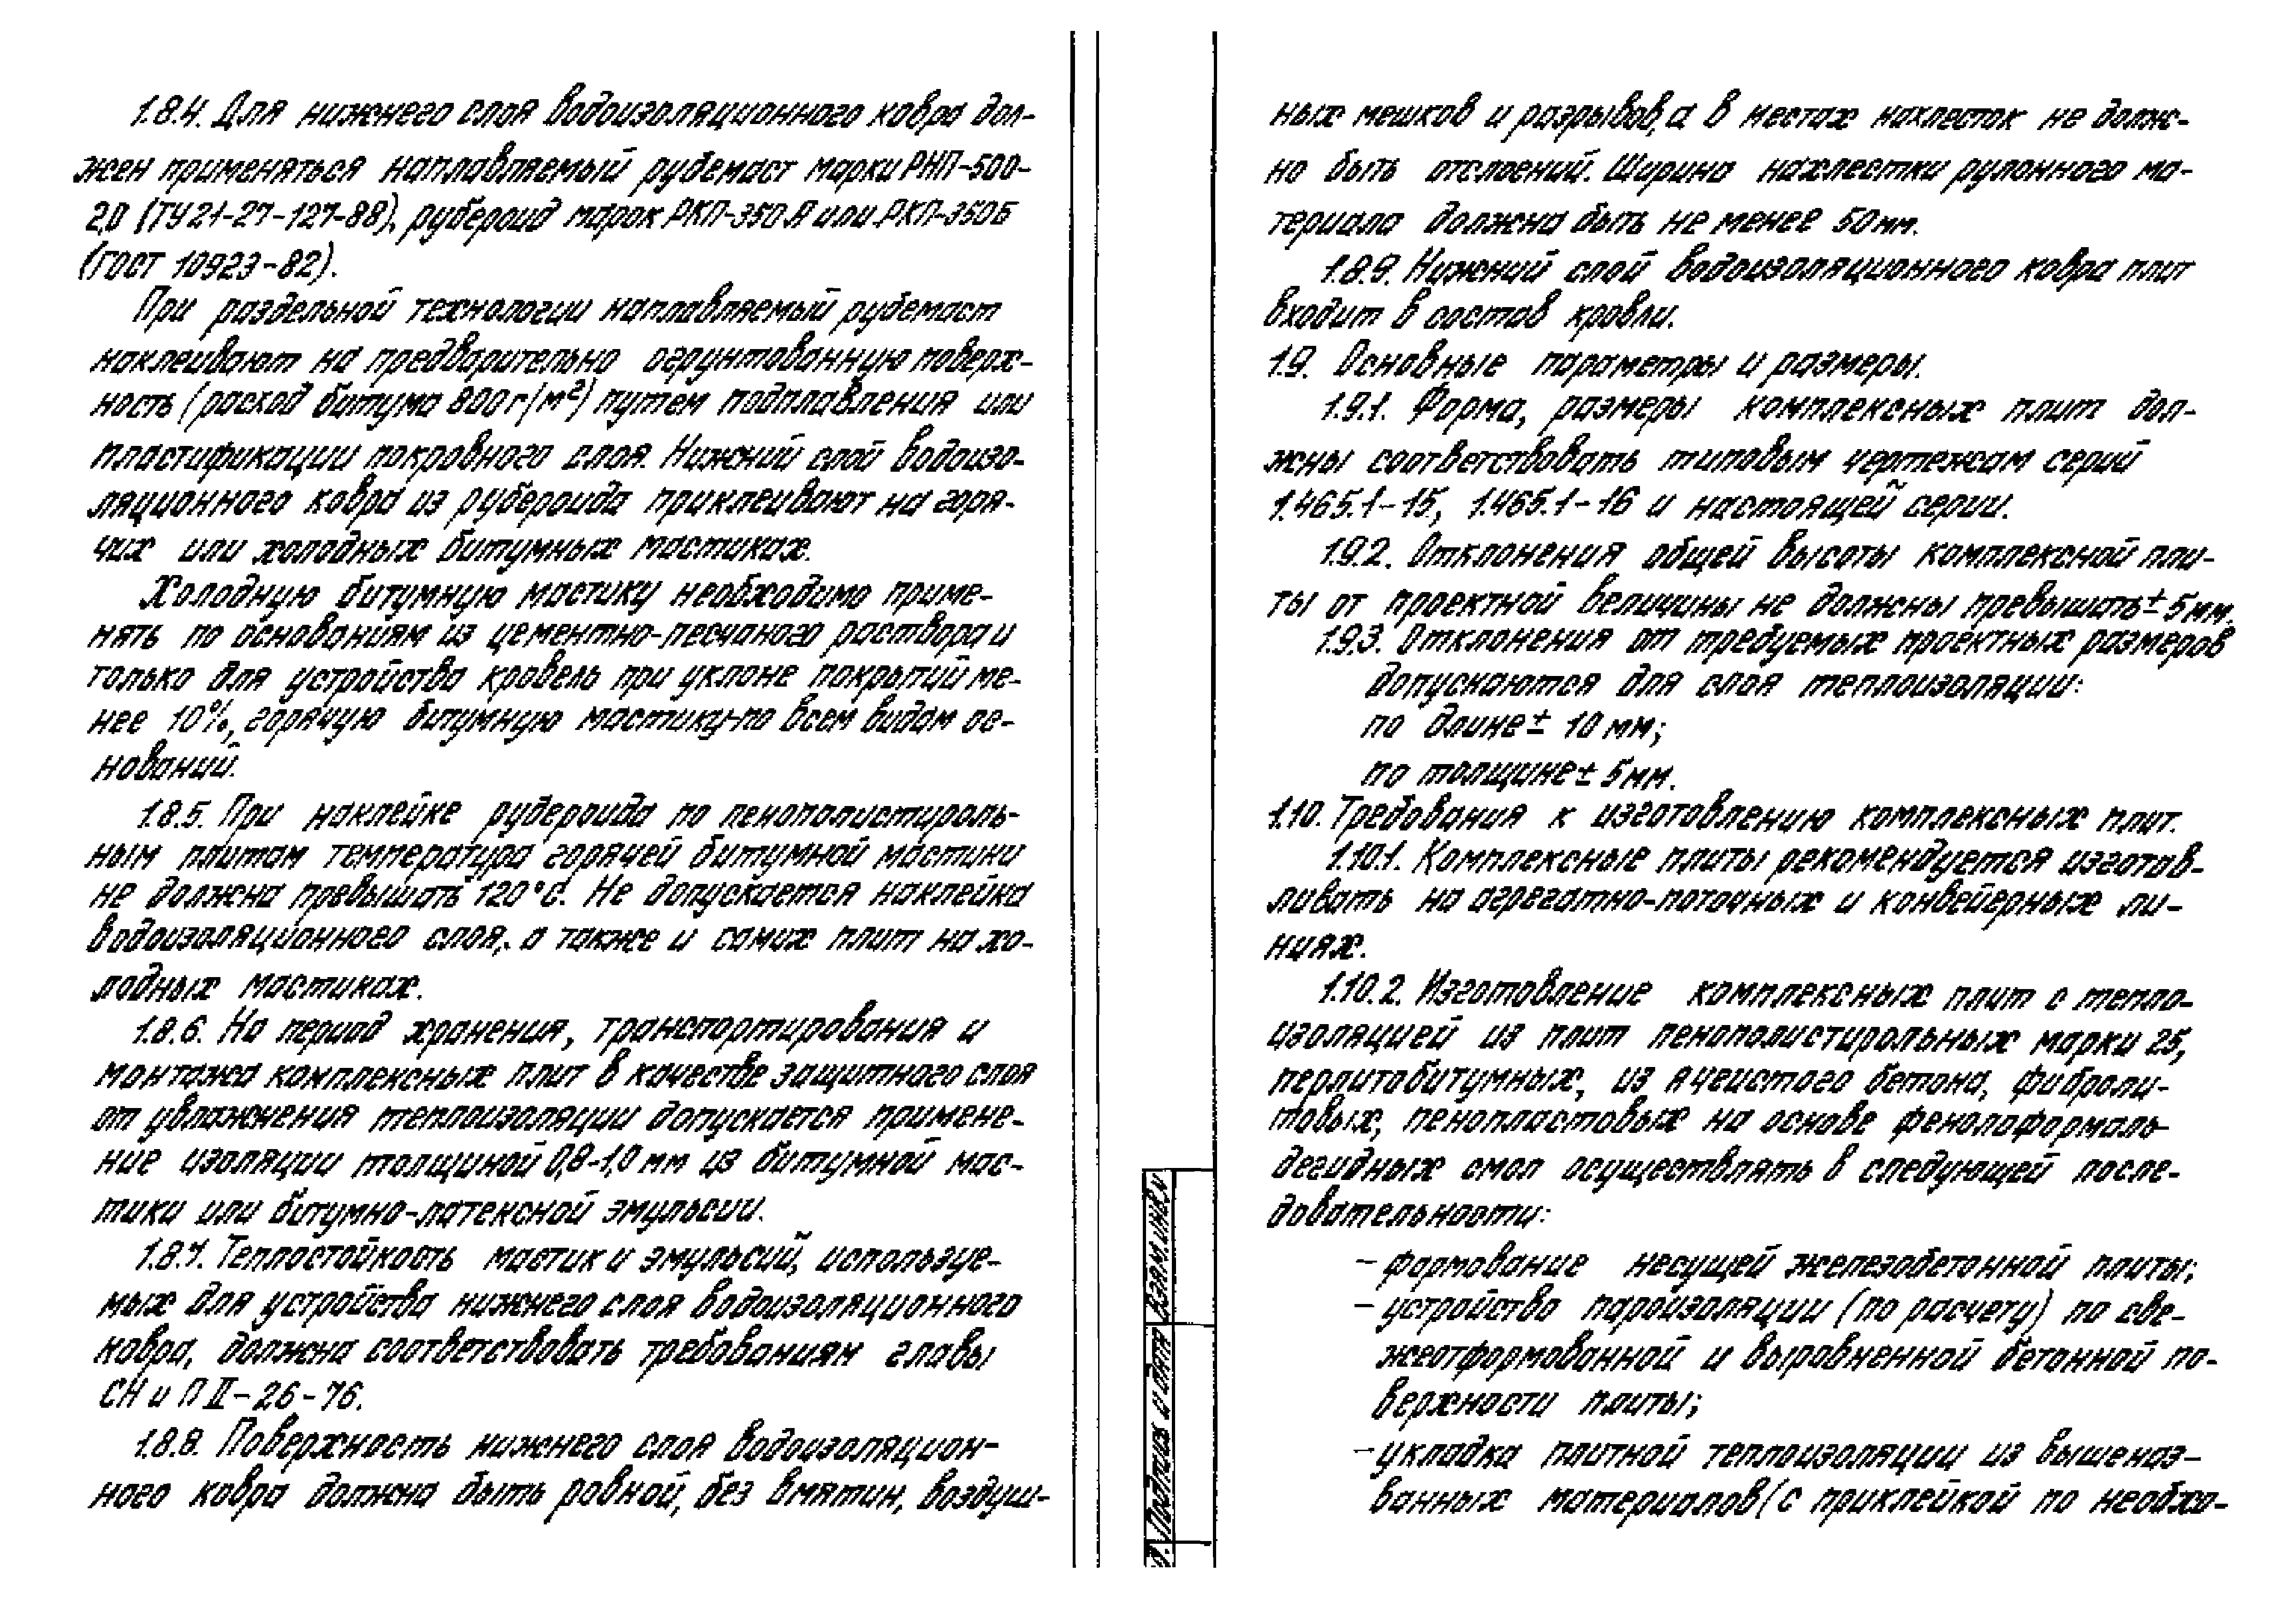 1.8.4. Для нижнего слоя водоизоляционного ковра дол-
жен применяться наплавляемый рубемаст марки РНП-500-
2,0 (ТУ21-27-127-88), рубероид марок РКП-350А или РКП-350Б
(ГОСТ 10923-82).
При раздельной технологии наплавляемый рубемаст
наклеивают на предварительно огрунтованную поверх-
ность (расход битума 800 г/м²) путем подплавления или
пластификации покровного слоя. Нижний слой водоизо-
ляционного ковра из рубероида приклеивают на горя-
чих или холодных битумных мастиках.
Холодную битумную мастику необходимо приме-
нять по основаниям из цементно-песчаного раствора и
только для устройства кровель при уклоне покрытий ме-
нее 10%, горячую битумную мастику-по всем видам ос-
нований.
1.8.5. При наклейке рубероида по пенополистироль-
ным плитам температура горячей битумной мастики
не должна превышать 120°С. Не допускается наклейка
водоизоляционного слоя, а также и самих плит на хо-
лодных мастиках.
1.8.6. На период хранения, транспортирования и
монтажа комплексных плит в качестве защитного слоя
от увлажнения теплоизоляции допускается примене-
ние изоляции толщиной 0,8-1,0 мм из битумной мас-
тики или битумно-латексной эмульсии.
1.8.7. Теплостойкость мастик и эмульсий, используе-
мых для устройства нижнего слоя водоизоляционного
ковра, должна соответствовать требованиям главы
СН и П II-26-76.
1.8.8. Поверхность нижнего слоя водоизоляцион-
ного ковра должна быть ровной, без вмятин, воздуш-
Подпись и дата
Взам.инв.N
ных мешков и разрывов, а в местах нахлесток не долж-
но быть отслоений. Ширина нахлестки рулонного ма-
териала должна быть не менее 50мм.
1.8.9. Нижний слой водоизоляционного ковра плит
входит в состав кровли.
1.9. Основные параметры и размеры.
1.9.1. Форма, размеры комплексных плит дол-
жны соответствовать типовым чертежам серий
1.465.1-15, 1.465.1-16 и настоящей серии.
1.9.2. Отклонения общей высоты комплексной пли-
ты от проектной величины не должны превышать ± 5 мм.
1.9.3. Отклонения от требуемых проектных размеров
допускаются для слоя теплоизоляции:
по длине ± 10 мм;
по толщине ± 5мм.
1.10. Требования к изготовлению комплексных плит.
1.10.1. Комплексные плиты рекомендуется изготав-
ливать на агрегатно-поточных и конвейерных ли-
ниях.
1.10.2. Изготовление комплексных плит с тепло-
изоляцией из плит пенополистирольных марки 25,
перлитобитумных, из ячеистого бетона, фиброли-
товых, пенопластовых на основе фенолоформаль-
дегидных смол осуществлять в следующей после-
довательности:
- формование несущей железобетонной плиты;
- устройство пароизоляции (по расчету) по све-
жеотформованной и выровненной бетонной по-
верхности плиты;
- укладка плитной теплоизоляции из вышеназ-
ванных материалов (с приклейкой по необхо-